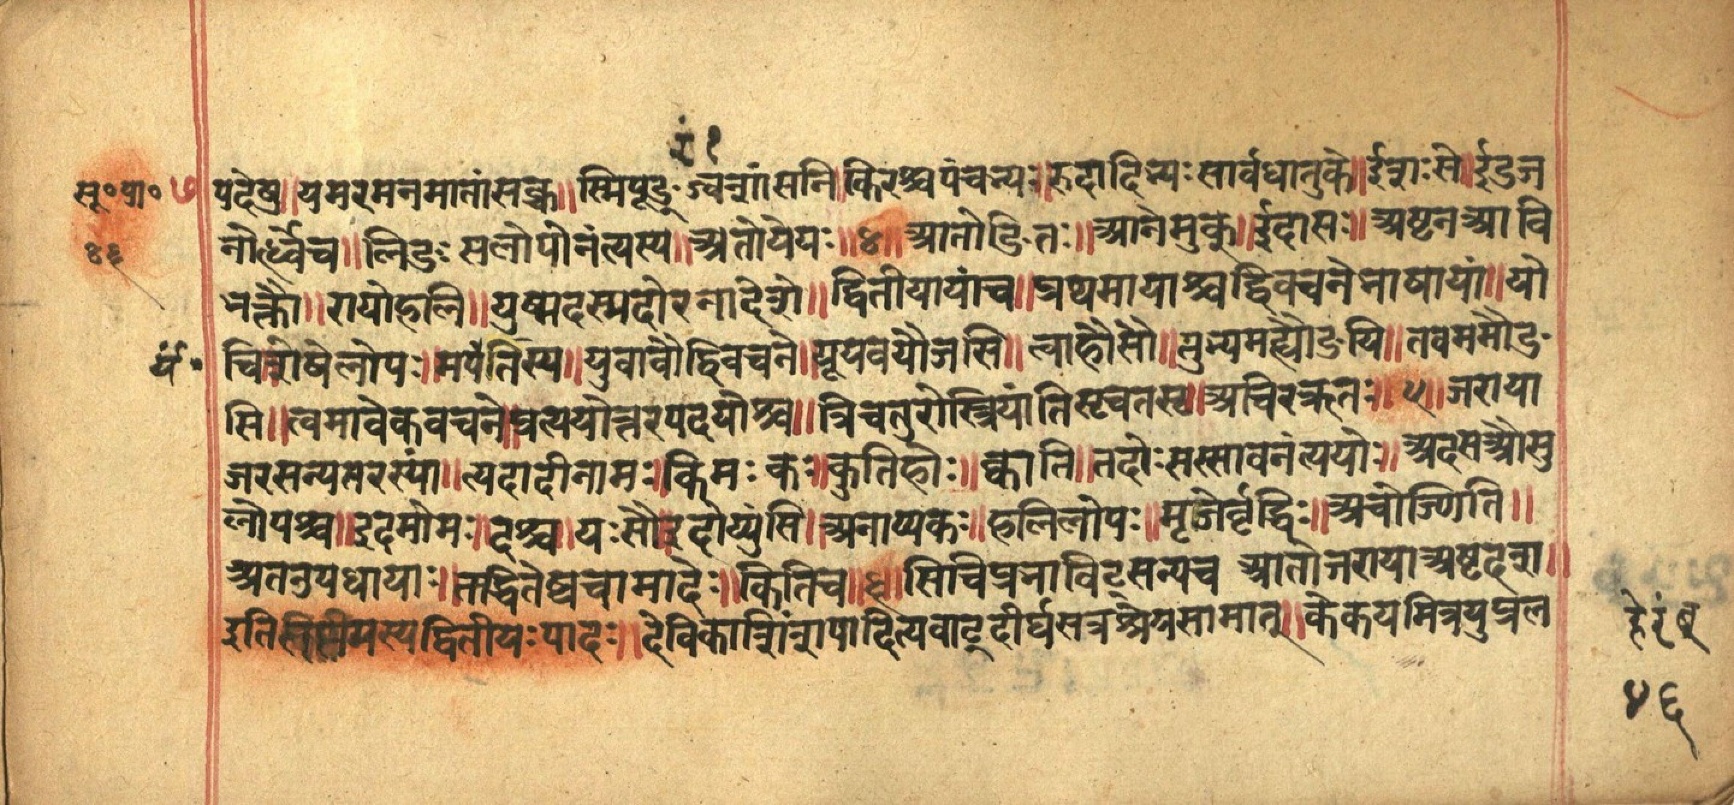 रं १
सू॰ पा॰ ७
४६
पदेषु॥ यमरमनमातांसक्च॥ स्मिपूङ्रंज्वशांसनि॥ किरश्चपंचभ्यः॥ रुदादिभ्यः सार्वधातुके॥ ईशःसे॥ ईडज
नोर्ध्वेच॥ लिङः सलोपोनंत्यस्य॥ अतोयेयः॥ ४॥ आतोङितः॥ आनेमुक्॥ ईदासः॥ अष्टनआवि
भक्तौ॥ रायोहलि॥ युष्मदस्मदोरनादेशे॥ द्वितीयायांच॥ प्रथमायाश्चद्विवचनेभाषायां॥ यो
र्य॰
चिशेषेलोपः॥ मपर्यंतस्य॥ युवावौद्विवचने॥ यूयवयौजसि॥ त्वाहौसौ॥ तुभ्यमह्यौङयि॥ तवममौङ
सि॥ त्वमावेकवचने॥ प्रत्ययोत्तरपदयोश्च॥ त्रिचतुरोस्त्रियांतिसृचतसृ॥ अचिरऋतः॥ ५॥ जराया
जरसन्यतरस्यां॥ त्यदादीनामः॥ किमः कः॥ कुतिहोः॥ क्वाति॥ तदोःसस्सावनंत्ययोः॥ अदसऔसु
लोपश्च॥ इदमोमः॥ दश्च॥ यःसौ॥ इदोय्पुंसि॥ अनाप्यकः॥ हलिलोपः॥ मृजेर्वृद्धिः॥ अचोञ्णिति॥
अतउपधायाः॥ तद्धितेष्वचामादेः॥ कितिच॥ ६॥ सिचिप्रभाविट्सन्यच आतोजरायाअष्टदश॥
इतिसप्तमस्यद्वितीयःपादः॥ देविकाशिंशपादित्यवाट्दीर्घसत्रश्रेयसामात्॥ केकयमित्रयुप्रल
हेरंब
४६